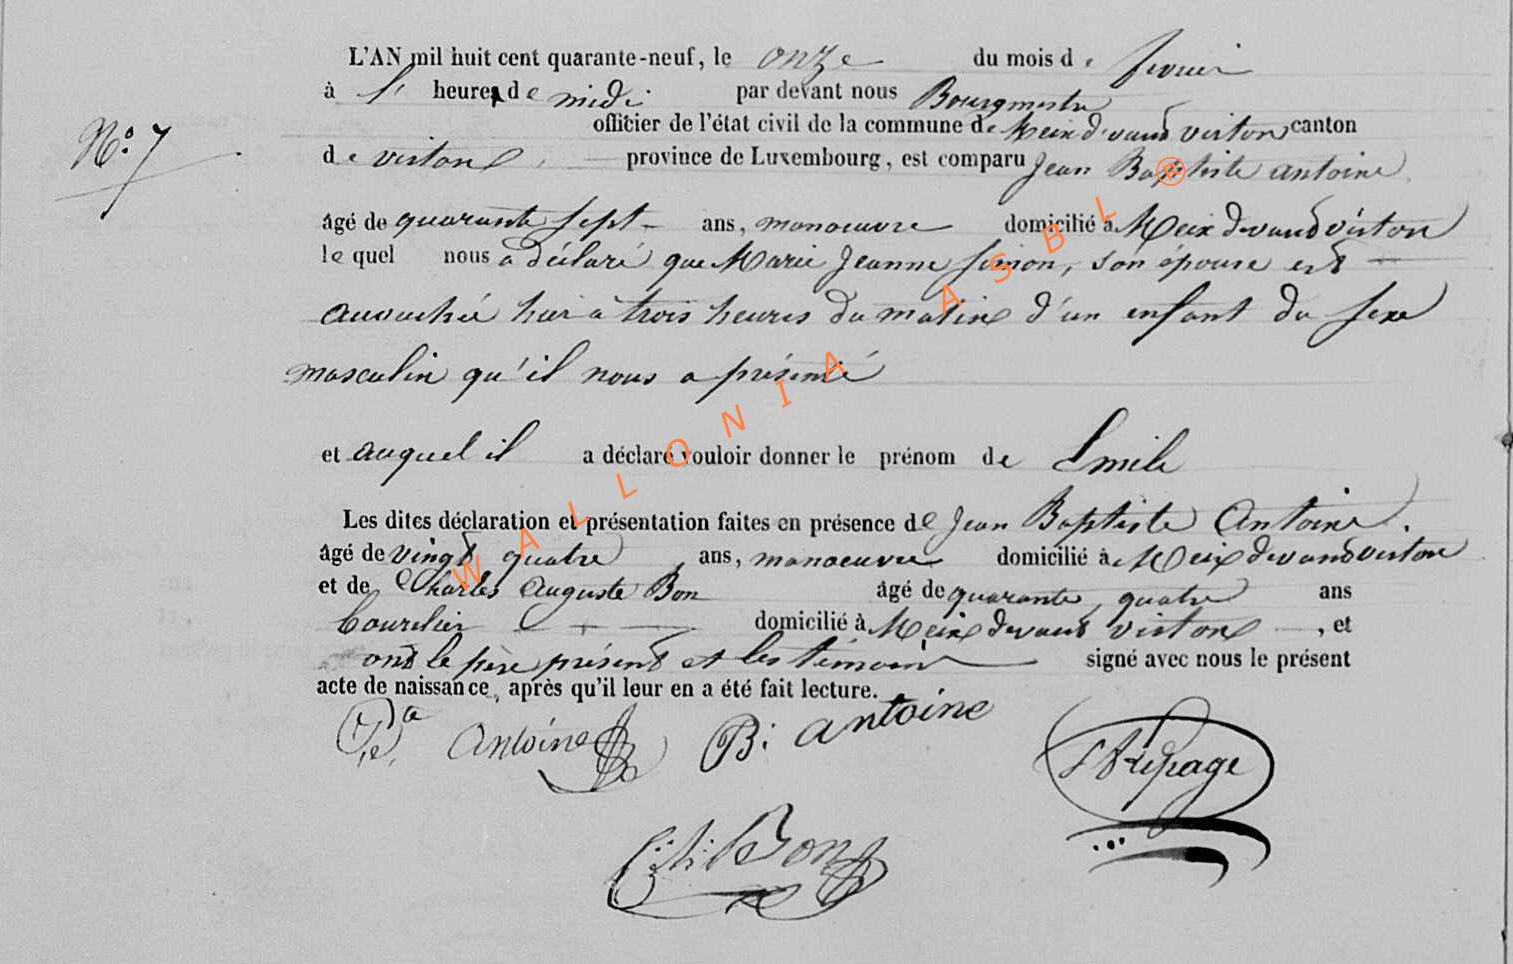 L'AN mil huit cent quarante-neuf, le onze du mois de fevrier
à l' heure de midi par devant nous Bourgmestre
officier de l'état civil de la commune de Meix devant virton canton
N.º 7
de virton province de Luxembourg, est comparu Jean Baptiste antoine
âgé de quarante sept ans, manoeuvre domicilié à Meix devant virton
lequel nous a déclaré que Marie Jeanne simon, son épouse est
accouchée hier à trois heures du matin d'un enfant du sexe
masculin qu'il nous a présenté
et auquel il a déclaré vouloir donner le prénom de Emile
Les dites déclaration et présentation faites en présence de Jean Baptiste Antoine.
âgé de vingt quatre ans, manoeuvre domicilié à Meix devant virton
et de Charles Auguste Bon âgé de quarante quatre ans
domicilié à Meix devant virton, et
ont le père présent et les témoins signé avec nous le présent
acte de naissance, après qu'il leur en a été fait lecture.
Antoine B: antoine Lepage
Bon
WALLONIA ASBL ®